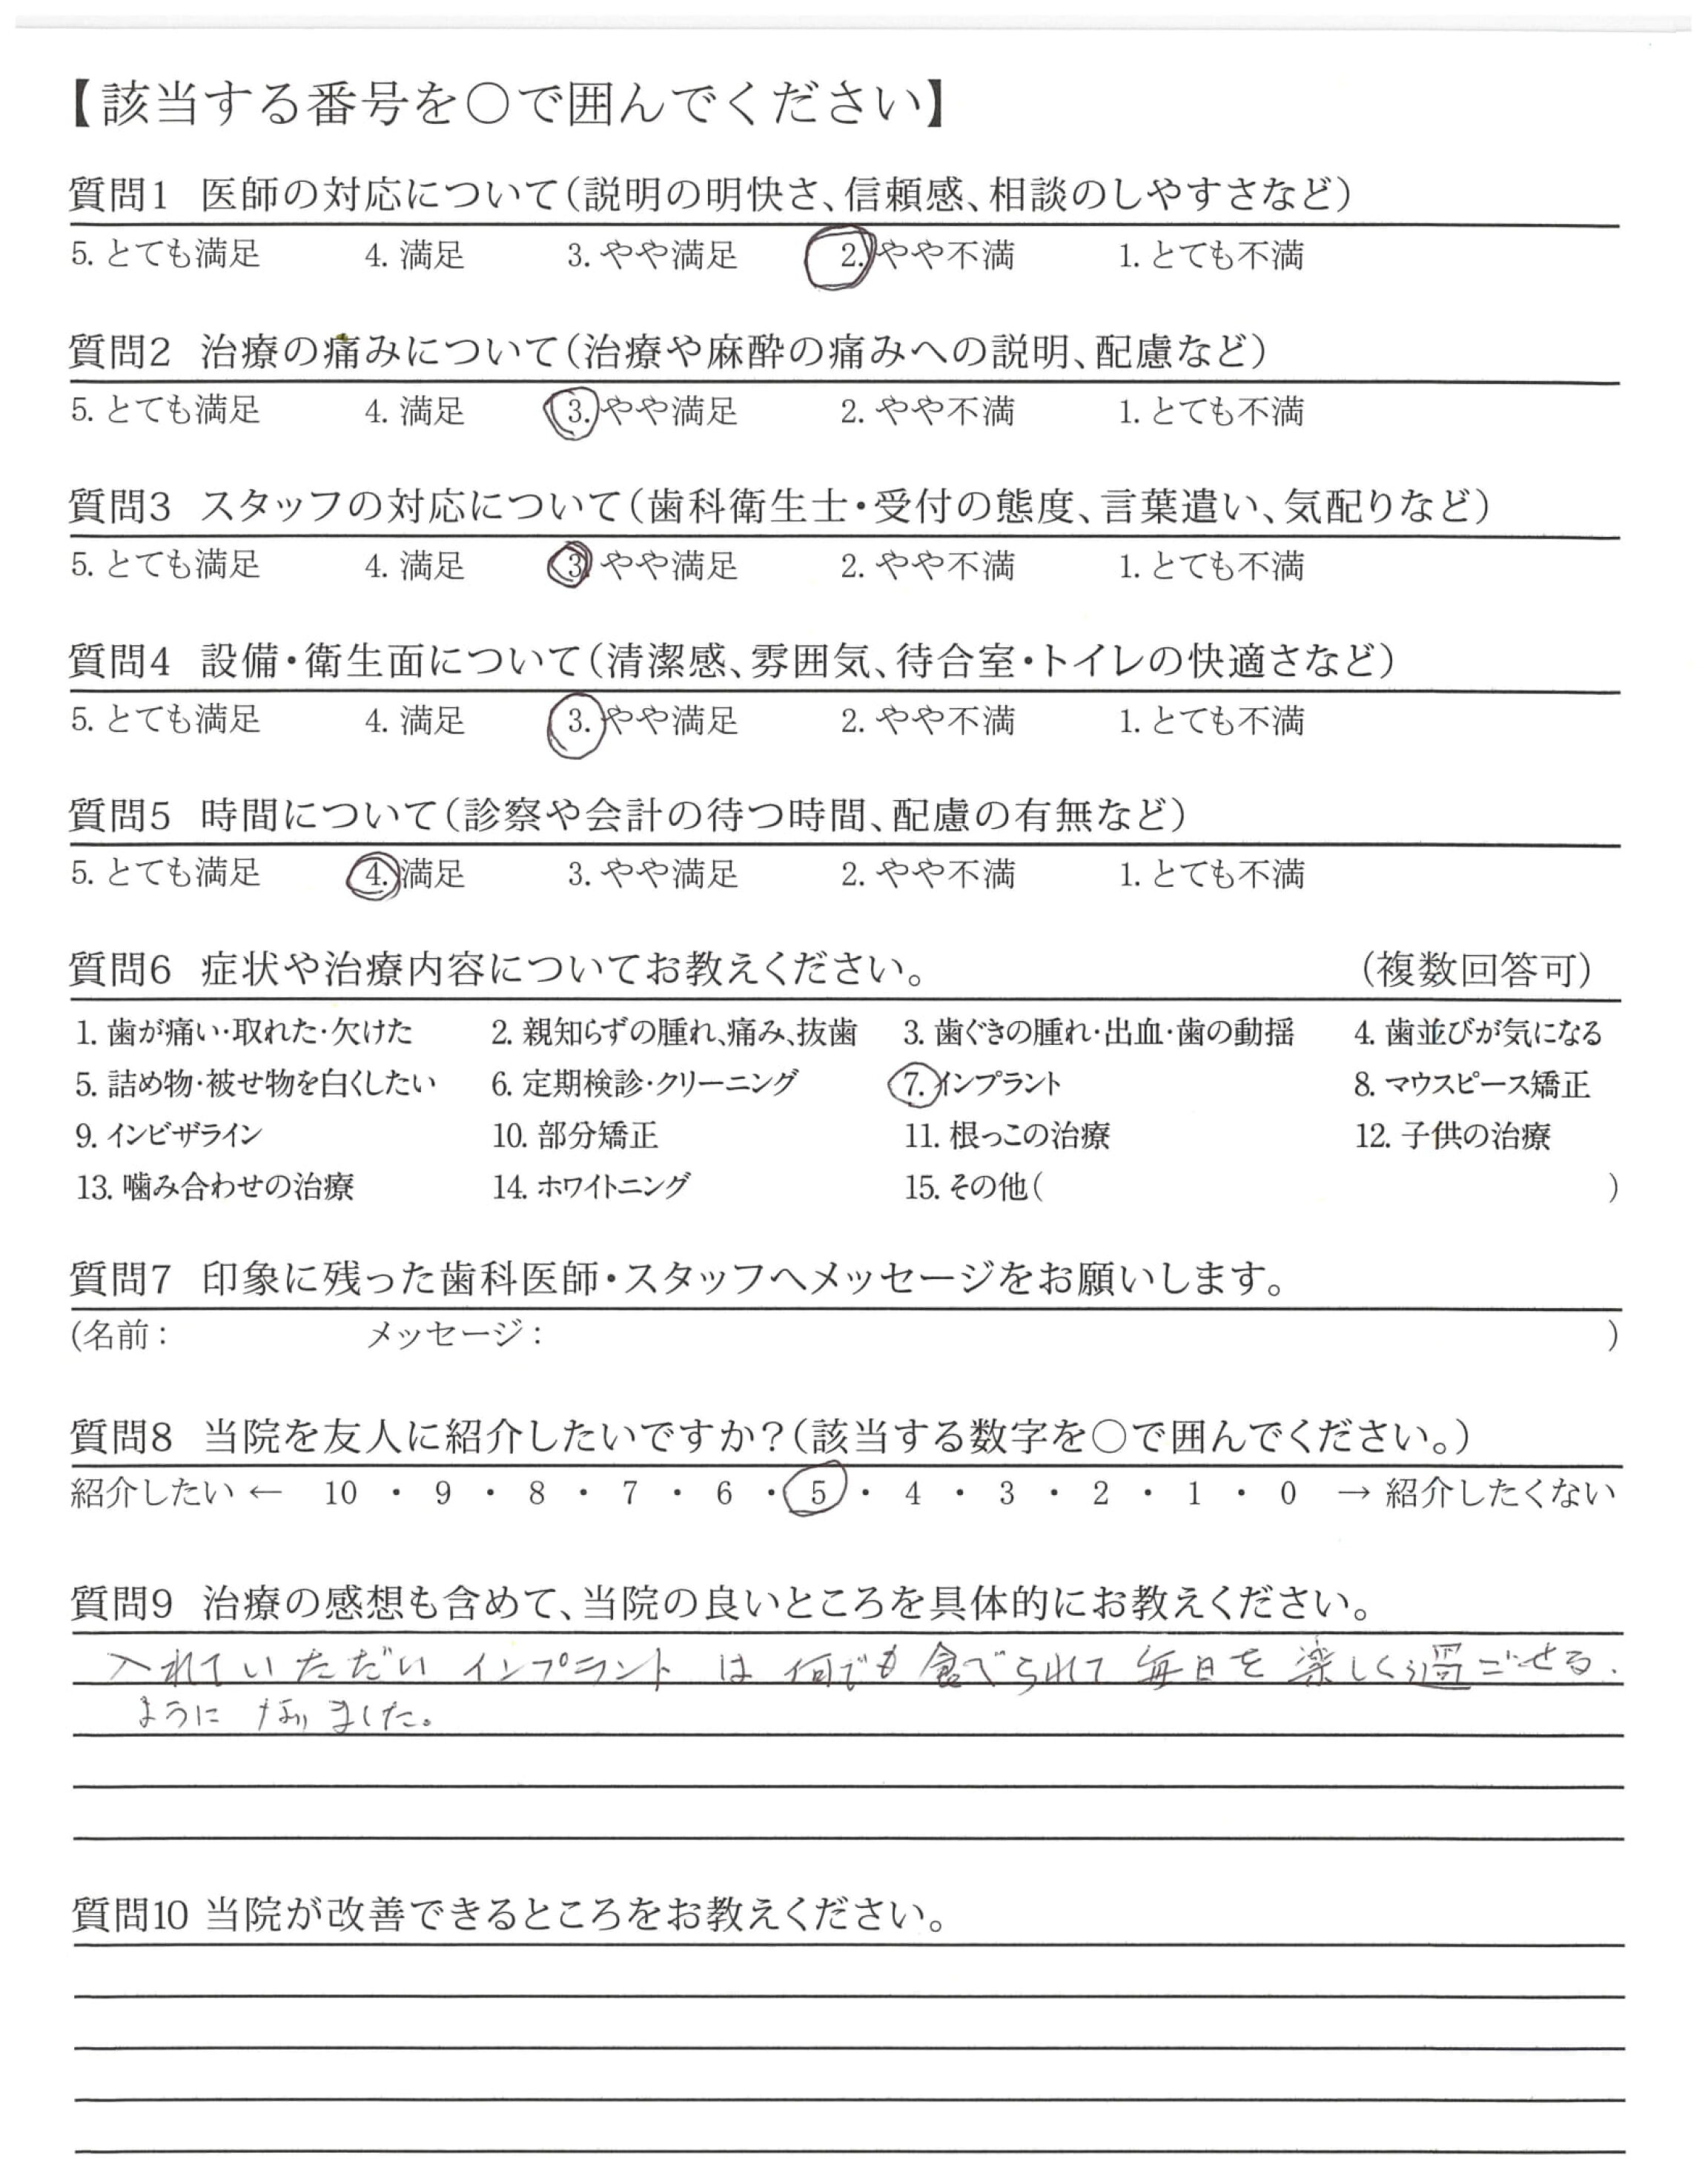 【該当する番号を○で囲んでください】
質問1 医師の対応について(説明の明快さ、信頼感、相談のしやすさなど)
5. とても満足 4. 満足 3. やや満足 2. やや不満 1. とても不満
質問2 治療の痛みについて(治療や麻酔の痛みへの説明、配慮など)
5. とても満足 4. 満足 3. やや満足 2. やや不満 1. とても不満
質問3 スタッフの対応について(歯科衛生士・受付の態度、言葉遣い、気配りなど)
5. とても満足 4. 満足 3. やや満足 2. やや不満 1. とても不満
質問4 設備・衛生面について(清潔感、雰囲気、待合室・トイレの快適さなど)
5. とても満足 4. 満足 3. やや満足 2. やや不満 1. とても不満
質問5 時間について(診察や会計の待つ時間、配慮の有無など)
5. とても満足 4. 満足 3. やや満足 2. やや不満 1. とても不満
質問6 症状や治療内容についてお教えください。 (複数回答可)
1. 歯が痛い・取れた・欠けた 2. 親知らずの腫れ、痛み、抜歯 3. 歯ぐきの腫れ・出血・歯の動揺 4. 歯並びが気になる
5. 詰め物・被せ物を白くしたい 6. 定期検診・クリーニング 7. インプラント 8. マウスピース矯正
9. インビザライン 10. 部分矯正 11. 根っこの治療 12. 子供の治療
13. 噛み合わせの治療 14. ホワイトニング 15. その他( )
質問7 印象に残った歯科医師・スタッフへメッセージをお願いします。
(名前: メッセージ: )
質問8 当院を友人に紹介したいですか?(該当する数字を○で囲んでください。)
紹介したい ← 10 ・ 9 ・ 8 ・ 7 ・ 6 ・ 5 ・ 4 ・ 3 ・ 2 ・ 1 ・ 0 → 紹介したくない
質問9 治療の感想も含めて、当院の良いところを具体的にお教えください。
入れていただい インプラント は 何でも 食べられて 毎日を 楽しく過ごせる
ように なりました。
質問10 当院が改善できるところをお教えください。